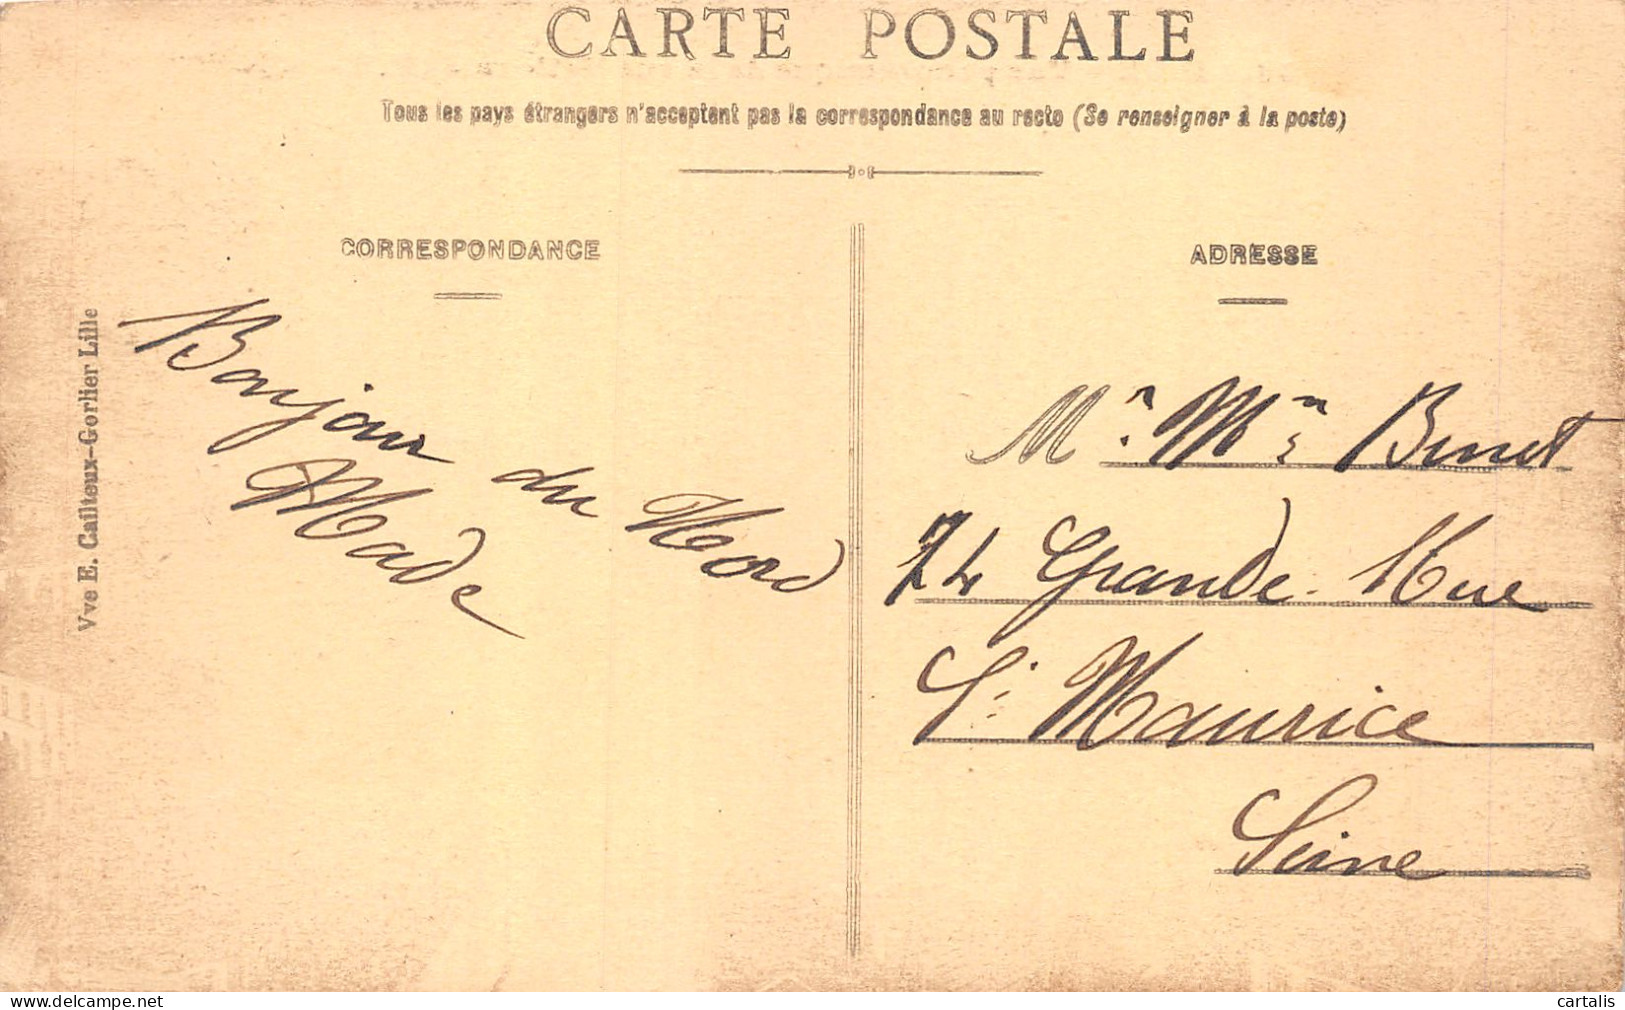 CARTE POSTALE
Tous les pays étrangers n'acceptent pas la correspondance au recto (Se renseigner à la poste)
CORRESPONDANCE
Bonjour du Nord
Made
Vve E. Cailteux-Gorlier Lille
ADRESSE
Mr. Mme Binet
74 Grande Rue
St Maurice
Seine
www.delcampe.net
cartalis